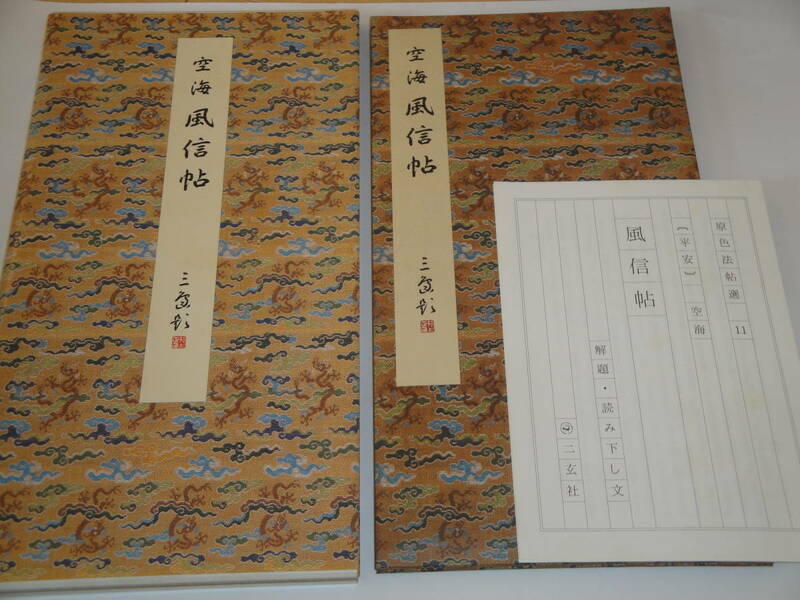 空海 風信帖
空海 風信帖
原色法帖選 11
〔平安〕 空海
風信帖
解題・読み下し文
二玄社